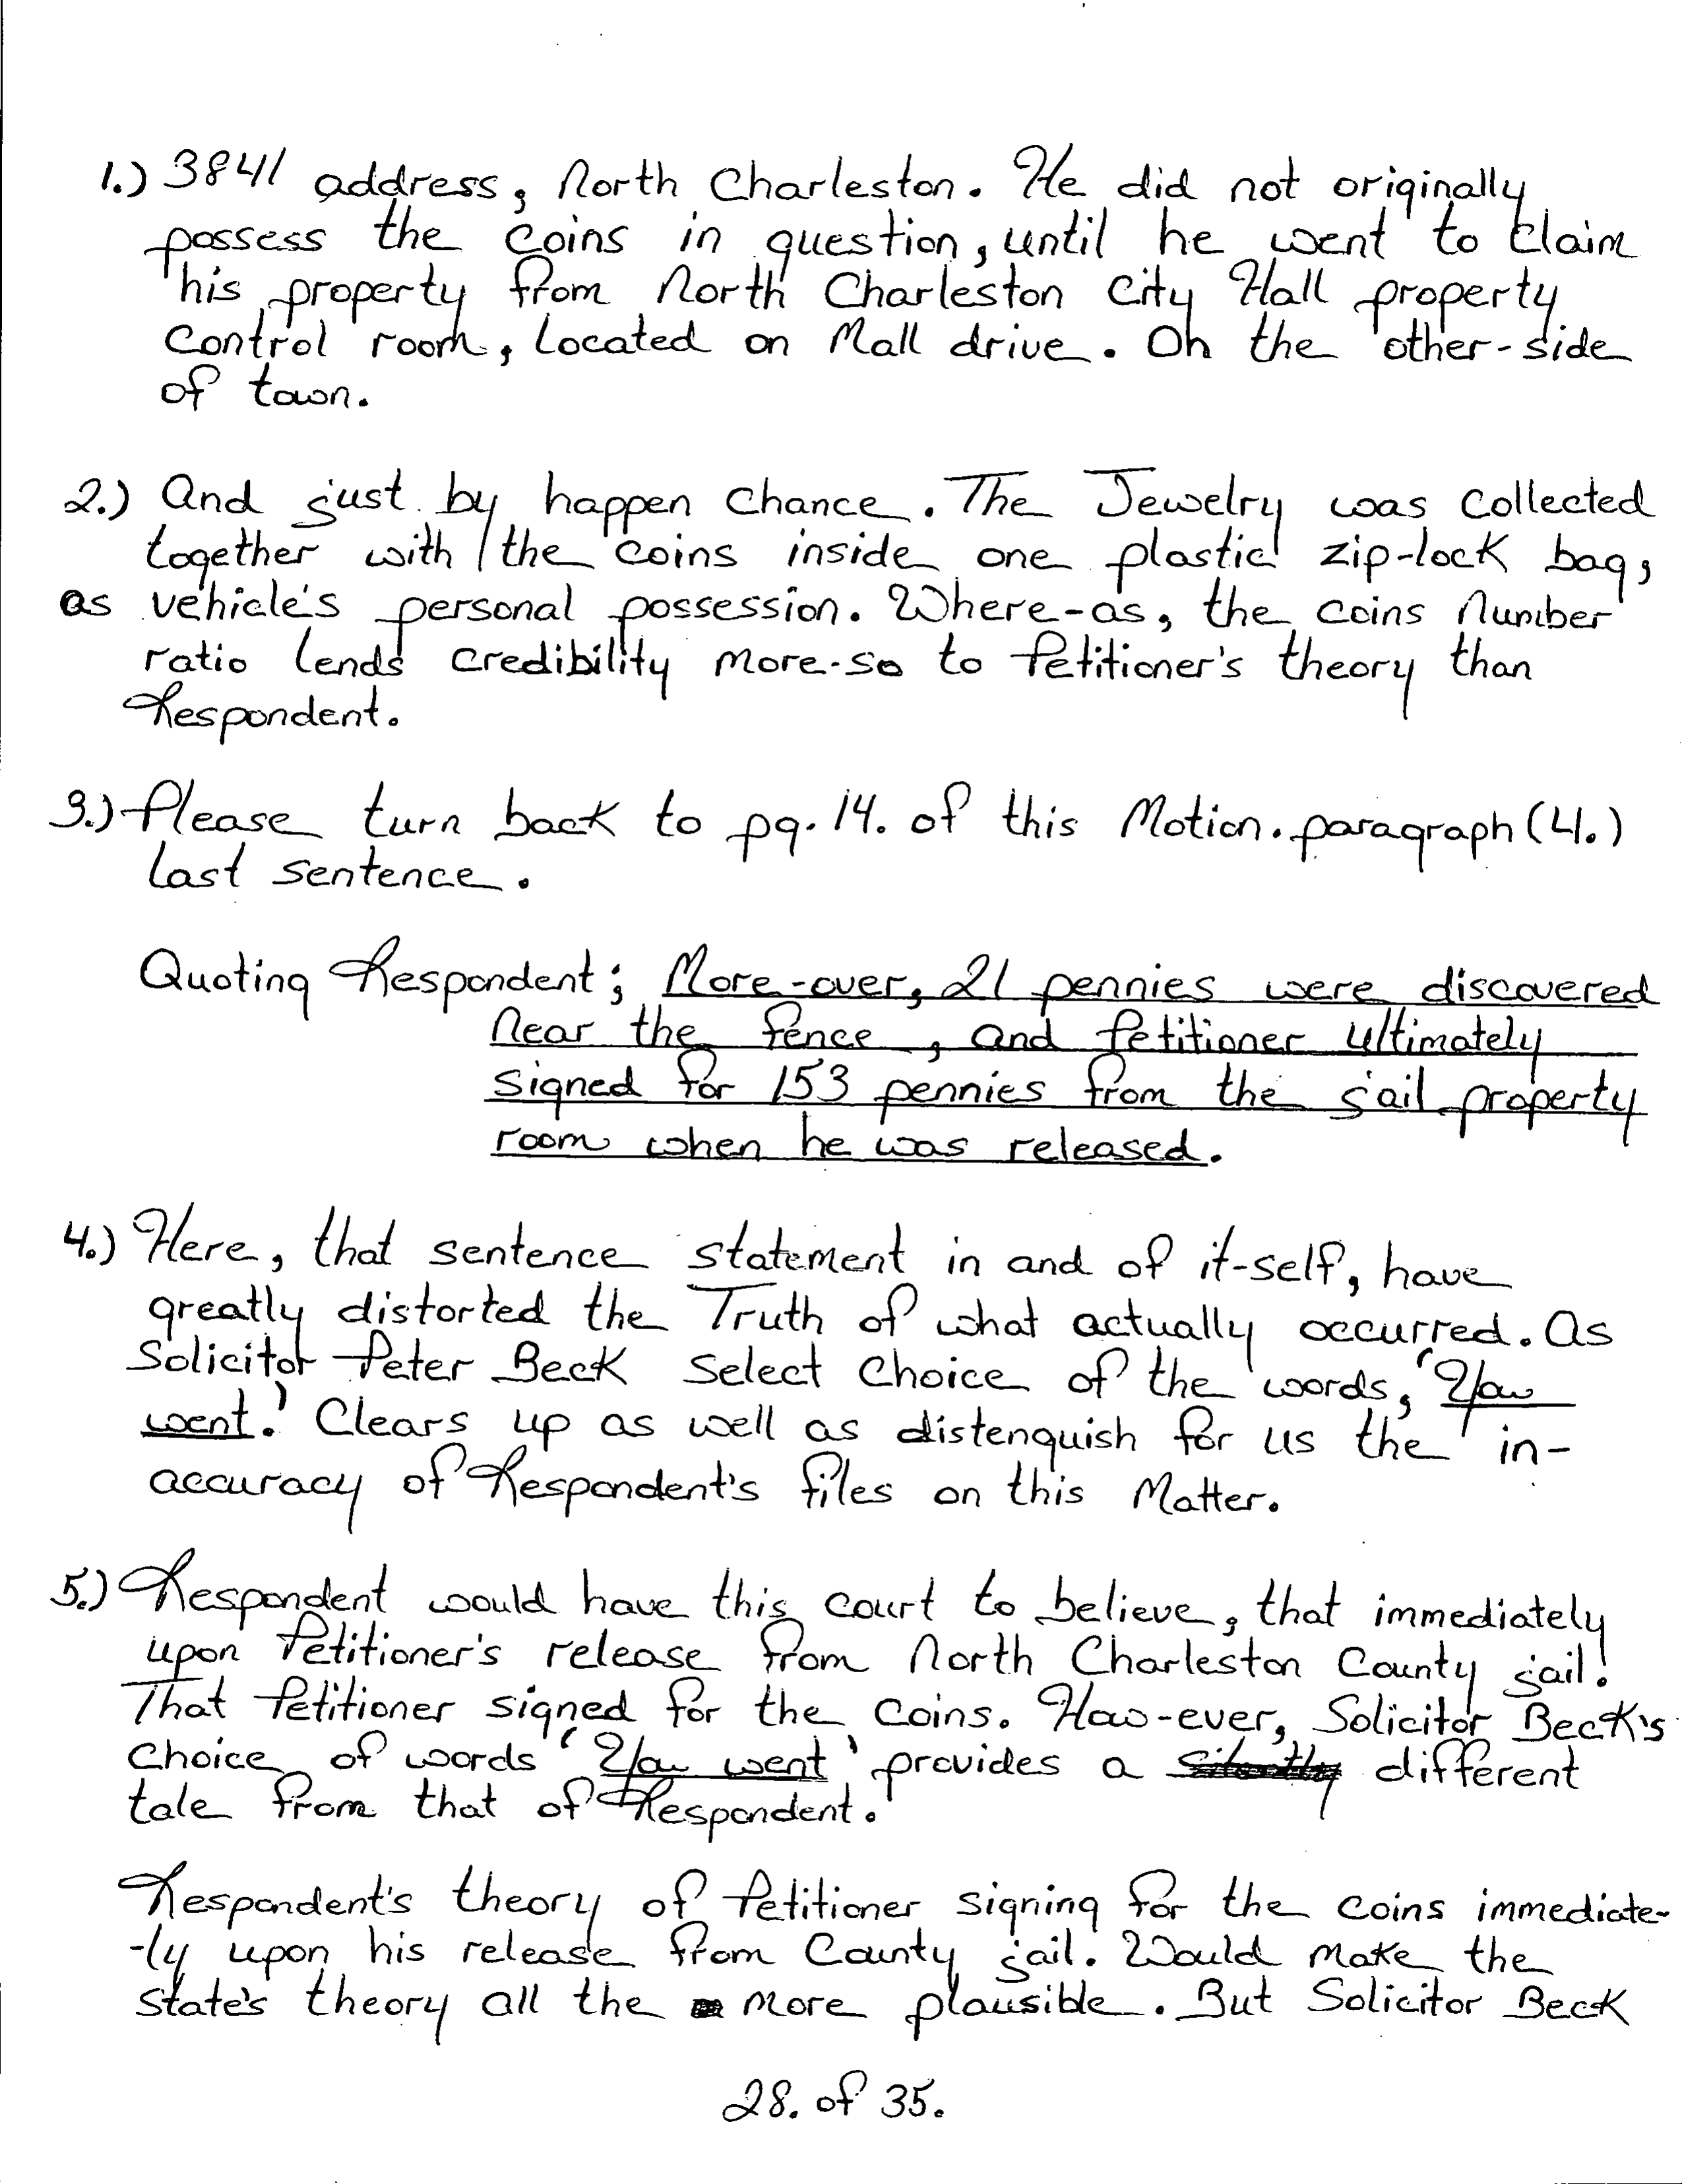 1.) 3841 address, North Charleston. He did not originally
possess the coins in question, until he went to claim
his property from North Charleston City Hall property
Control room, located on Mall drive. On the other-side
of town.
2.) And just by happen chance. The Jewelry was collected
together with the coins inside one plastic zip-lock bag,
as vehicle's personal possession. Where-as, the coins Number
ratio lends credibility more-so to Petitioner's theory than
Respondent.
3.) Please turn back to pg. 14. of this Motion. paragraph (4.)
last sentence.
Quoting Respondent; More-over, 21 pennies were discovered
Near the fence, and Petitioner ultimately
signed for 153 pennies from the jail property
room when he was released.
4.) Here, that sentence statement in and of it-self, have
greatly distorted the Truth of what actually occurred. As
Solicitor Peter Beck select choice of the words, 'You
went.' Clears up as well as distenquish for us the in-
accuracy of Respondent's files on this Matter.
5.) Respondent would have this court to believe, that immediately
upon Petitioner's release from North Charleston County jail!
That Petitioner signed for the coins. How-ever, Solicitor Beck's
choice of words 'You went' provides a different
tale from that of Respondent.
Respondent's theory of Petitioner signing for the coins immediate-
-ly upon his release from County jail. Would make the
State's theory all the more plausible. But Solicitor Beck
28. of 35.